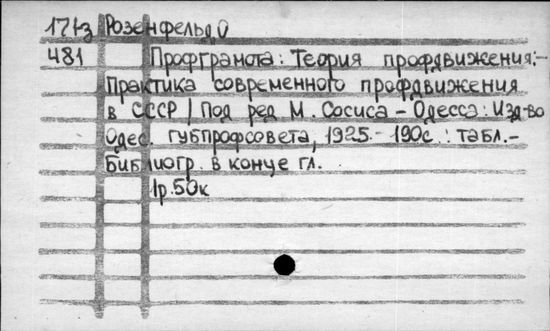 17/3 Розенфельд, О
481 Профграмота: Теория профдвижения:-
Практика современного профдвижения
в СССР / Под ред М. Сосиса - Одесса: Изд-во
Одес. губпрофсовета, 1925.- 190с.: табл.-
Библиогр. в конце гл.
1р.50к